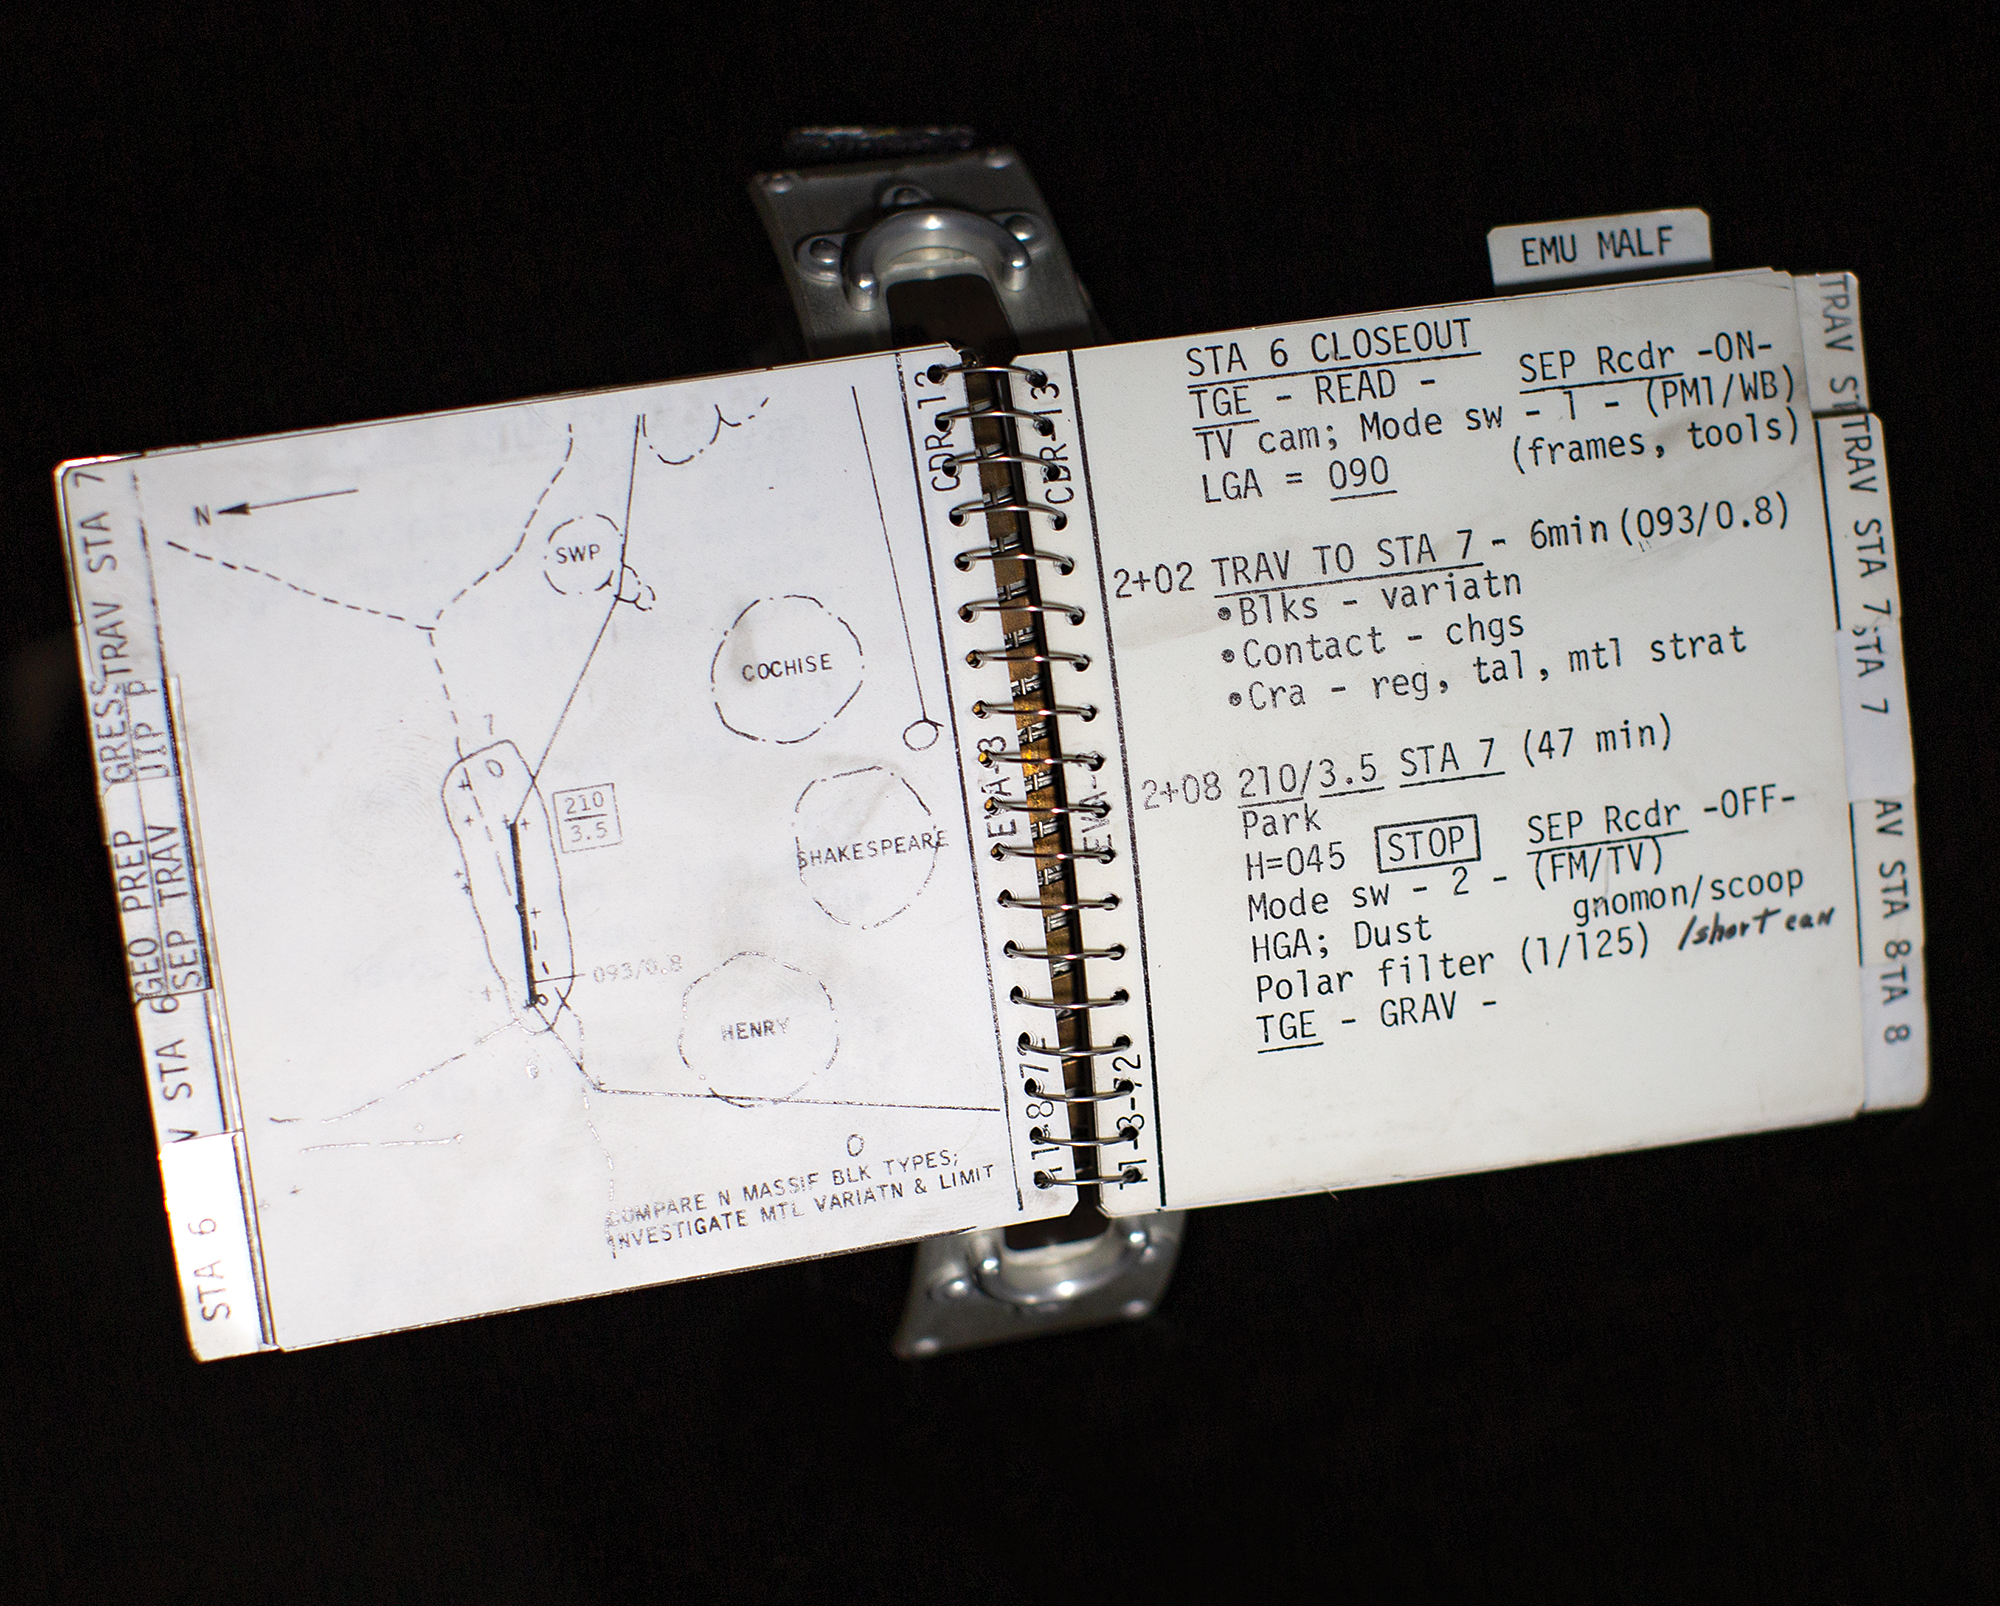 TRAV STA 7
GRESS
JIP P
GEO PREP
SEP TRAV
V STA 6
STA 6
N
SWP
COCHISE
7
210
3.5
SHAKESPEARE
093/0.8
HENRY
6
COMPARE N MASSIF BLK TYPES;
INVESTIGATE MTL VARIATN & LIMIT
CDR-12
EVA-3
11-8-72
CDR-13
EVA-3
11-8-72
EMU MALF
STA 6 CLOSEOUT
TGE - READ - SEP Rcdr -ON-
TV cam; Mode sw - 1 - (PM1/WB)
LGA = 090 (frames, tools)
2+02 TRAV TO STA 7 - 6min (093/0.8)
•Blks - variatn
•Contact - chgs
•Cra - reg, tal, mtl strat
2+08 210/3.5 STA 7 (47 min)
Park
H=045 STOP SEP Rcdr -OFF-
Mode sw - 2 - (FM/TV)
HGA; Dust gnomon/scoop
Polar filter (1/125) /short can
TGE - GRAV -
TRAV ST
TRAV STA 7
STA 7
AV STA 8
TA 8